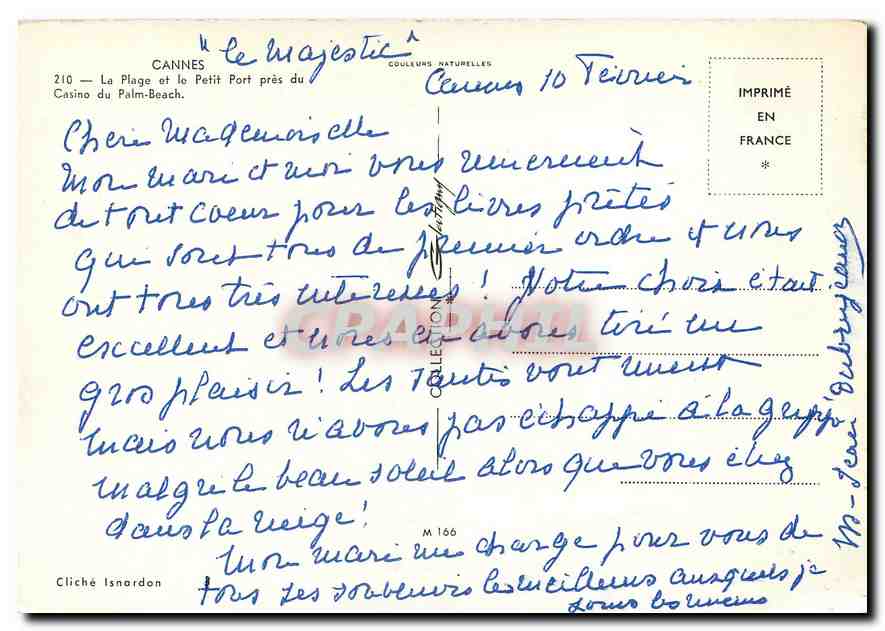 "Le Majestic"
CANNES
COULEURS NATURELLES
210 — La Plage et le Petit Port près du
Casino du Palm-Beach.
Cannes 10 Février
IMPRIMÉ
EN
FRANCE
*
Chère Mademoiselle
Mon mari et moi vous remercient
de tout coeur pour les livres prêtés
qui sont tous de premier ordre et nous
ont tous très intéressés ! Votre choix était
excellent et nous en avons tiré un
gros plaisir ! Les santés vont mieux
mais nous n'avons pas échappé à la grippe
malgré le beau soleil alors que vous êtes
dans la neige !
Mon mari me charge pour vous de
tous ses souvenirs les meilleurs auxquels je
joins les miens
M - Jean
COLLECTION
M 166
Cliché Isnardon
CPAPHIL